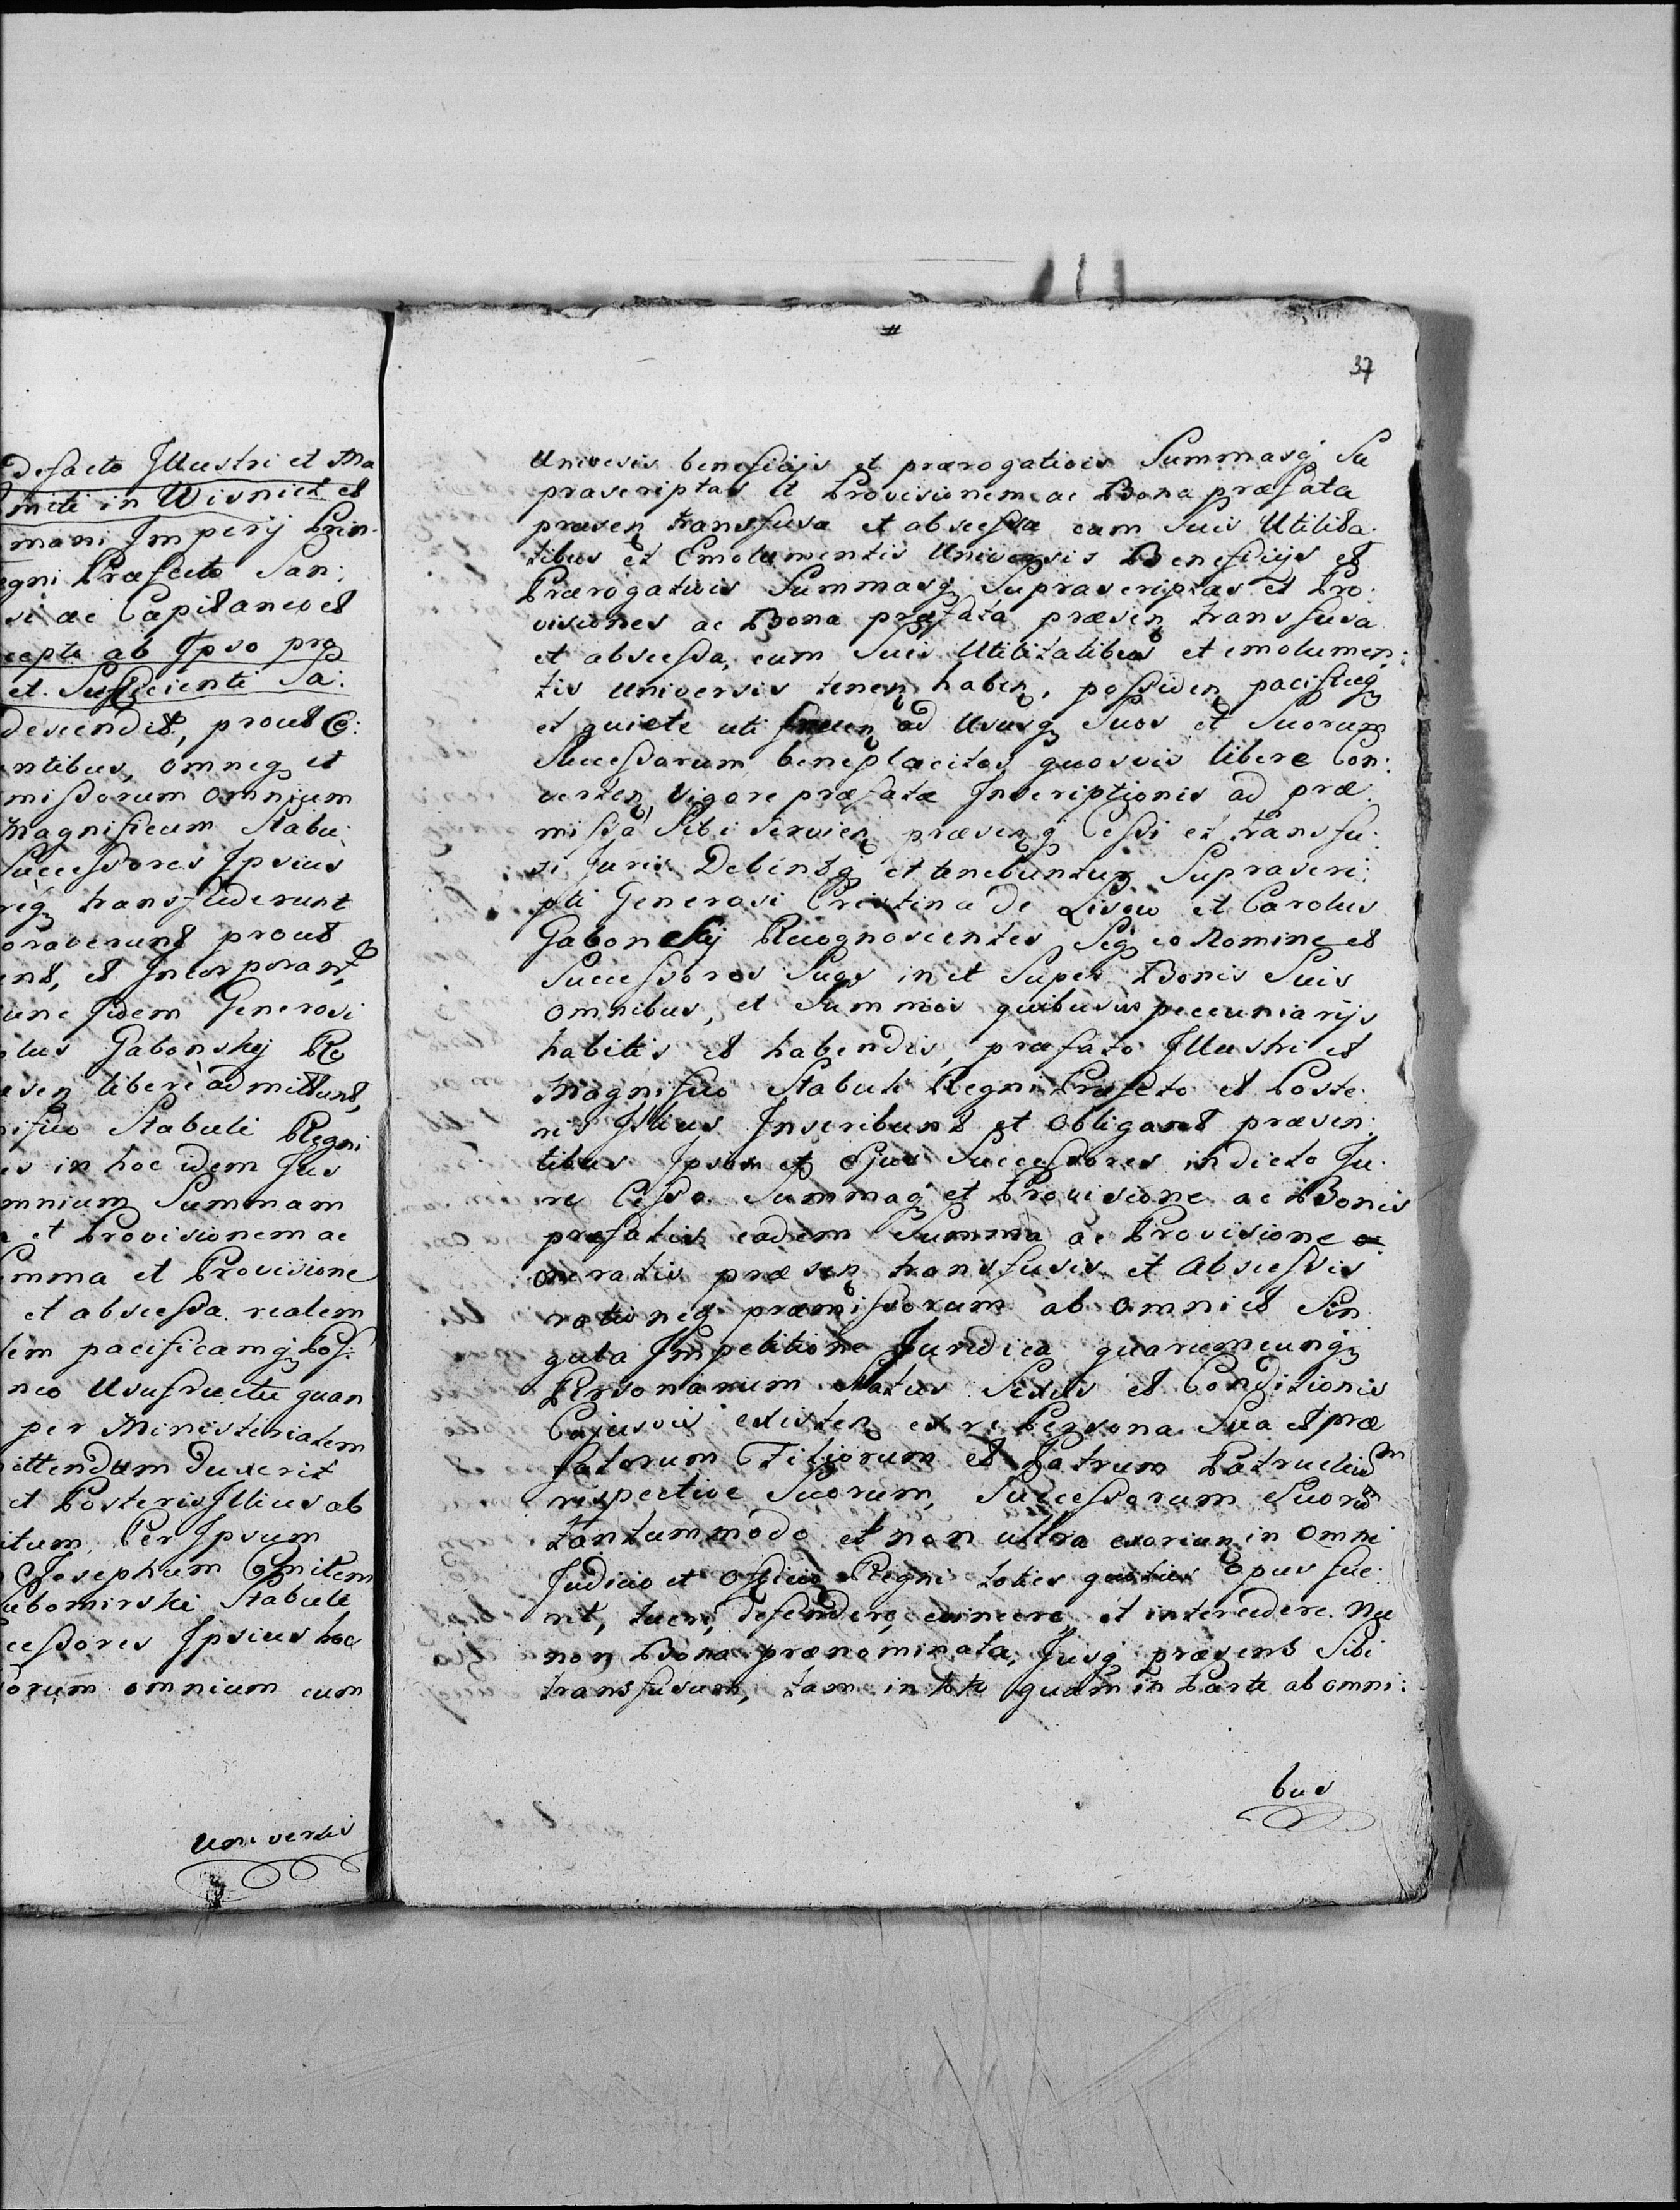 defacto Illustri et Ma
miti in Wisnicz et
mani Imperij Prin:
egni Præfecto San:
si ac Capitaneo et
cepta ab Ipso pro
et Sufficienti Sa:
descendit, prout C:
ntibus, omneq et
missorum omnium
Magnificum Stabu:
Successores Ipsius
req transfuderunt
oraverunt prout
ent, et Incorporant,
unc fidem Generosi
olus Gabonskij Re
esen liberè admittunt,
nifico Stabuli Regni
es in hoc idem Jus
mnium Summam
et Provisionem ac
umma et Provisione
et abscessa realem
lem pacificamq Pos:
neo Usufructu quan
per Ministerialem
ittendam duxerit
et Posteris Illius ab
itum Per Ipsum
Josephum Comitem
ubomirski Stabuli
cessores Ipsius hoc
orum omnium cum
Universis
37
Universis beneficijs et prærogativis Summasq Su
prascriptas et Provisionem ac Bona præfata
præsen transfusa et abscessa cum suis Utilita:
tibus et Emolumentis Universis Beneficijs et
Prærogativis Summasq Suprascriptas et Pro:
visiones ac Bona præfata præsen transfusa
et abscessa, cum Suis Utilitatibus et emolumen:
tis Universis tenen haben, possiden pacificeq
et quiete uti fruen ad Ususq Suos et Suorum
Successorum beneplacitos quosvis libere Con:
verten, vigore præfatæ Inscriptionis ad præ:
missa Sibi servien præsenq Cessi et transfu:
si Juris Debentq et tenebuntur Suprascri:
pti Generosi Cristina de Lisow et Carolus
Gabonskij Recognoscentes Seq eo Nomine et
Successores Suos in et Super Bonis Suis
Omnibus, et Summis quibusvis peccuniarijs
habitis et habendis, præfato Illustri et
Magnifico Stabuli Regni Præfecto et Poste:
ris Illius Inscribunt et Obligant præsen:
tibus Ipsum et Ejus Successores in dicto Ju:
re Cesso Summaq et Provisione ac Bonis
præfatis eadem Summa ac Provisione o
oneratis præsen transfusis et Abscessis
rationeq præmissorum ab omni et Sin
gula Impetitione Juridica quarumcunq
Personarum Status Sexus et Conditionis
Cujusvis existen ex re Persona Sua et præ
fatorum Filiorum et Fatrum Patrueliũm
respective Suorum, Successorum Suorũm
tantummodo et non ultra exorien in Omni
Judicio et Officio Regni toties quoties Opus fue:
rit, tueri, defendere, evincere, et intercedere. Nec
non Bona prænominata, Jusq præsens Sibi
transfusum, tam in toto quam in Parte ab omni:
bus